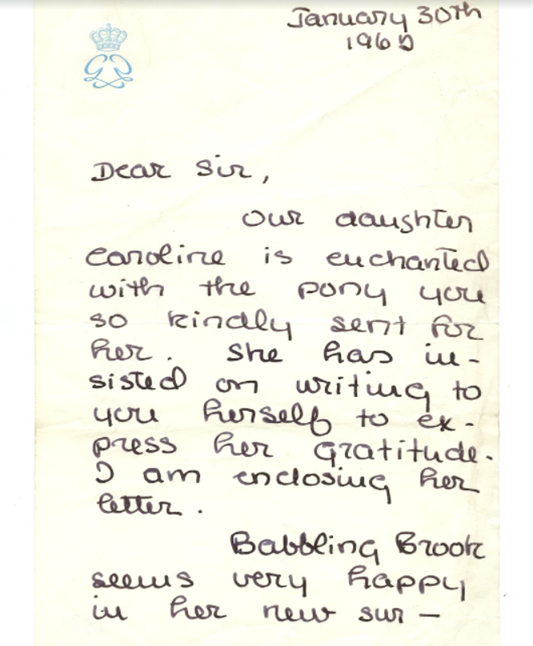 January 30th
Dear Sir,
Our daughter
Caroline is enchanted
with the pony you
so kindly sent for
her. She has in-
sisted on writing to
you herself to ex-
press her gratitude.
I am enclosing her
letter.
Babbling Brook
seems very happy
in her new sur-